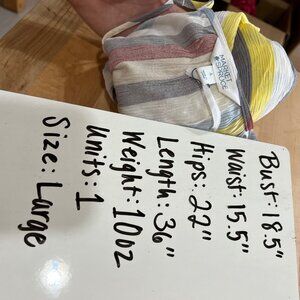 MARKET
& SPRUCE
Bust: 18.5"
Waist: 15.5"
Hips: 22"
Length: 36"
Weight: 10oz
Units: 1
Size: Large